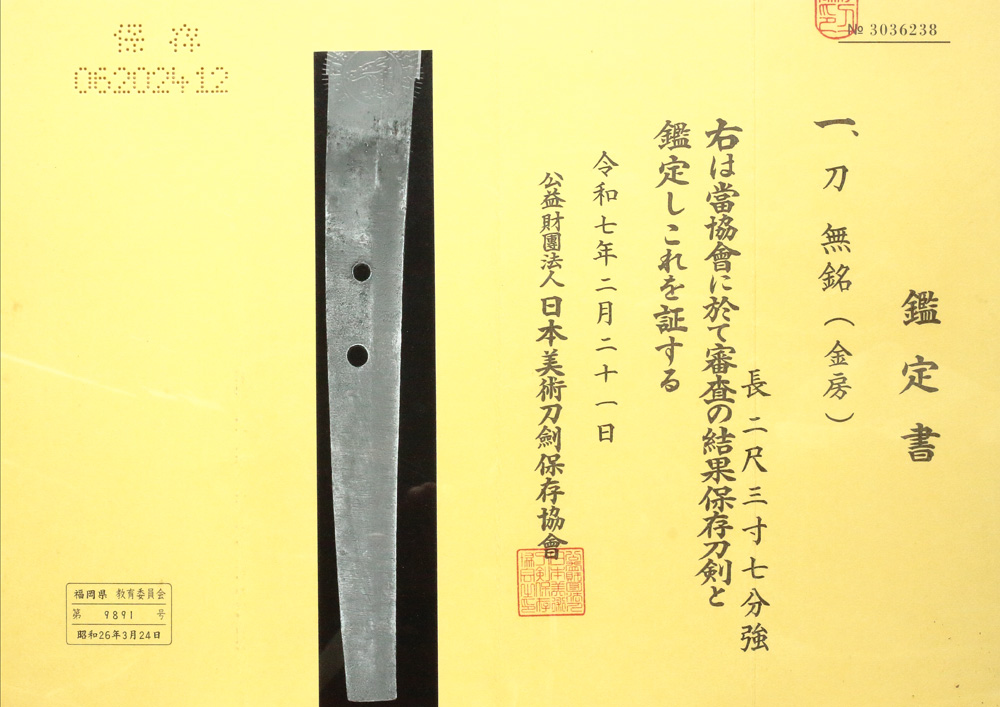 № 3036238
鑑定書
一、刀 無銘（金房）
長 二尺三寸七分強
右は當協會に於て審査の結果保存刀剣と
鑑定しこれを証する
令和七年二月二十一日
公益財團法人 日本美術刀劍保存協會
保存
06202412
福岡県 教育委員会
第 9891 号
昭和26年3月24日